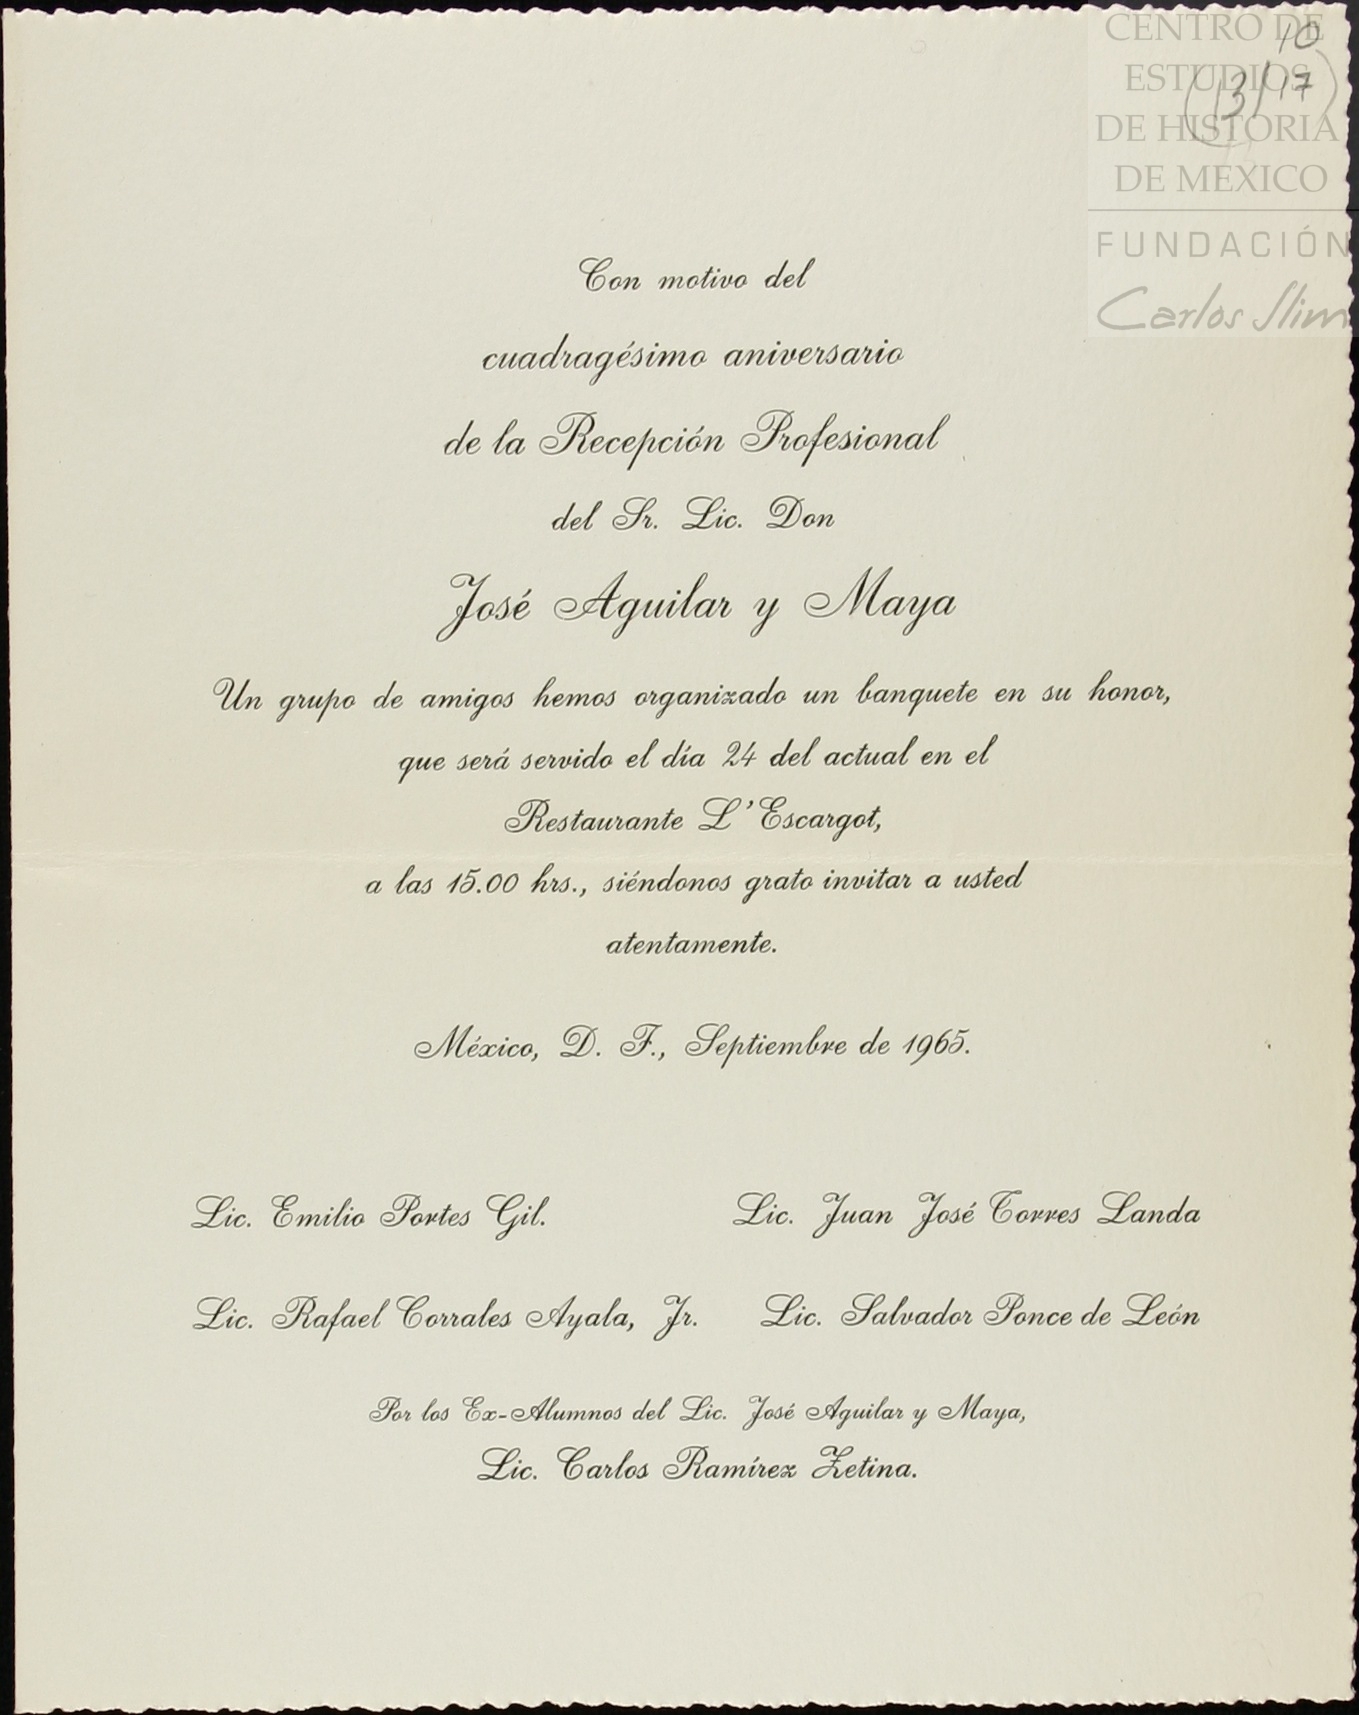 CENTRO DE
ESTUDIOS
DE HISTORIA
DE MEXICO
FUNDACIÓN
Carlos Slim
10
(13/17)
Con motivo del
cuadragésimo aniversario
de la Recepción Profesional
del Sr. Lic. Don
José Aguilar y Maya
Un grupo de amigos hemos organizado un banquete en su honor,
que será servido el día 24 del actual en el
Restaurante L'Escargot,
a las 15.00 hrs., siéndonos grato invitar a usted
atentamente.
México, D. F., Septiembre de 1965.
Lic. Emilio Portes Gil. Lic. Juan José Torres Landa
Lic. Rafael Corrales Ayala, Jr. Lic. Salvador Ponce de León
Por los Ex-Alumnos del Lic. José Aguilar y Maya,
Lic. Carlos Ramírez Zetina.